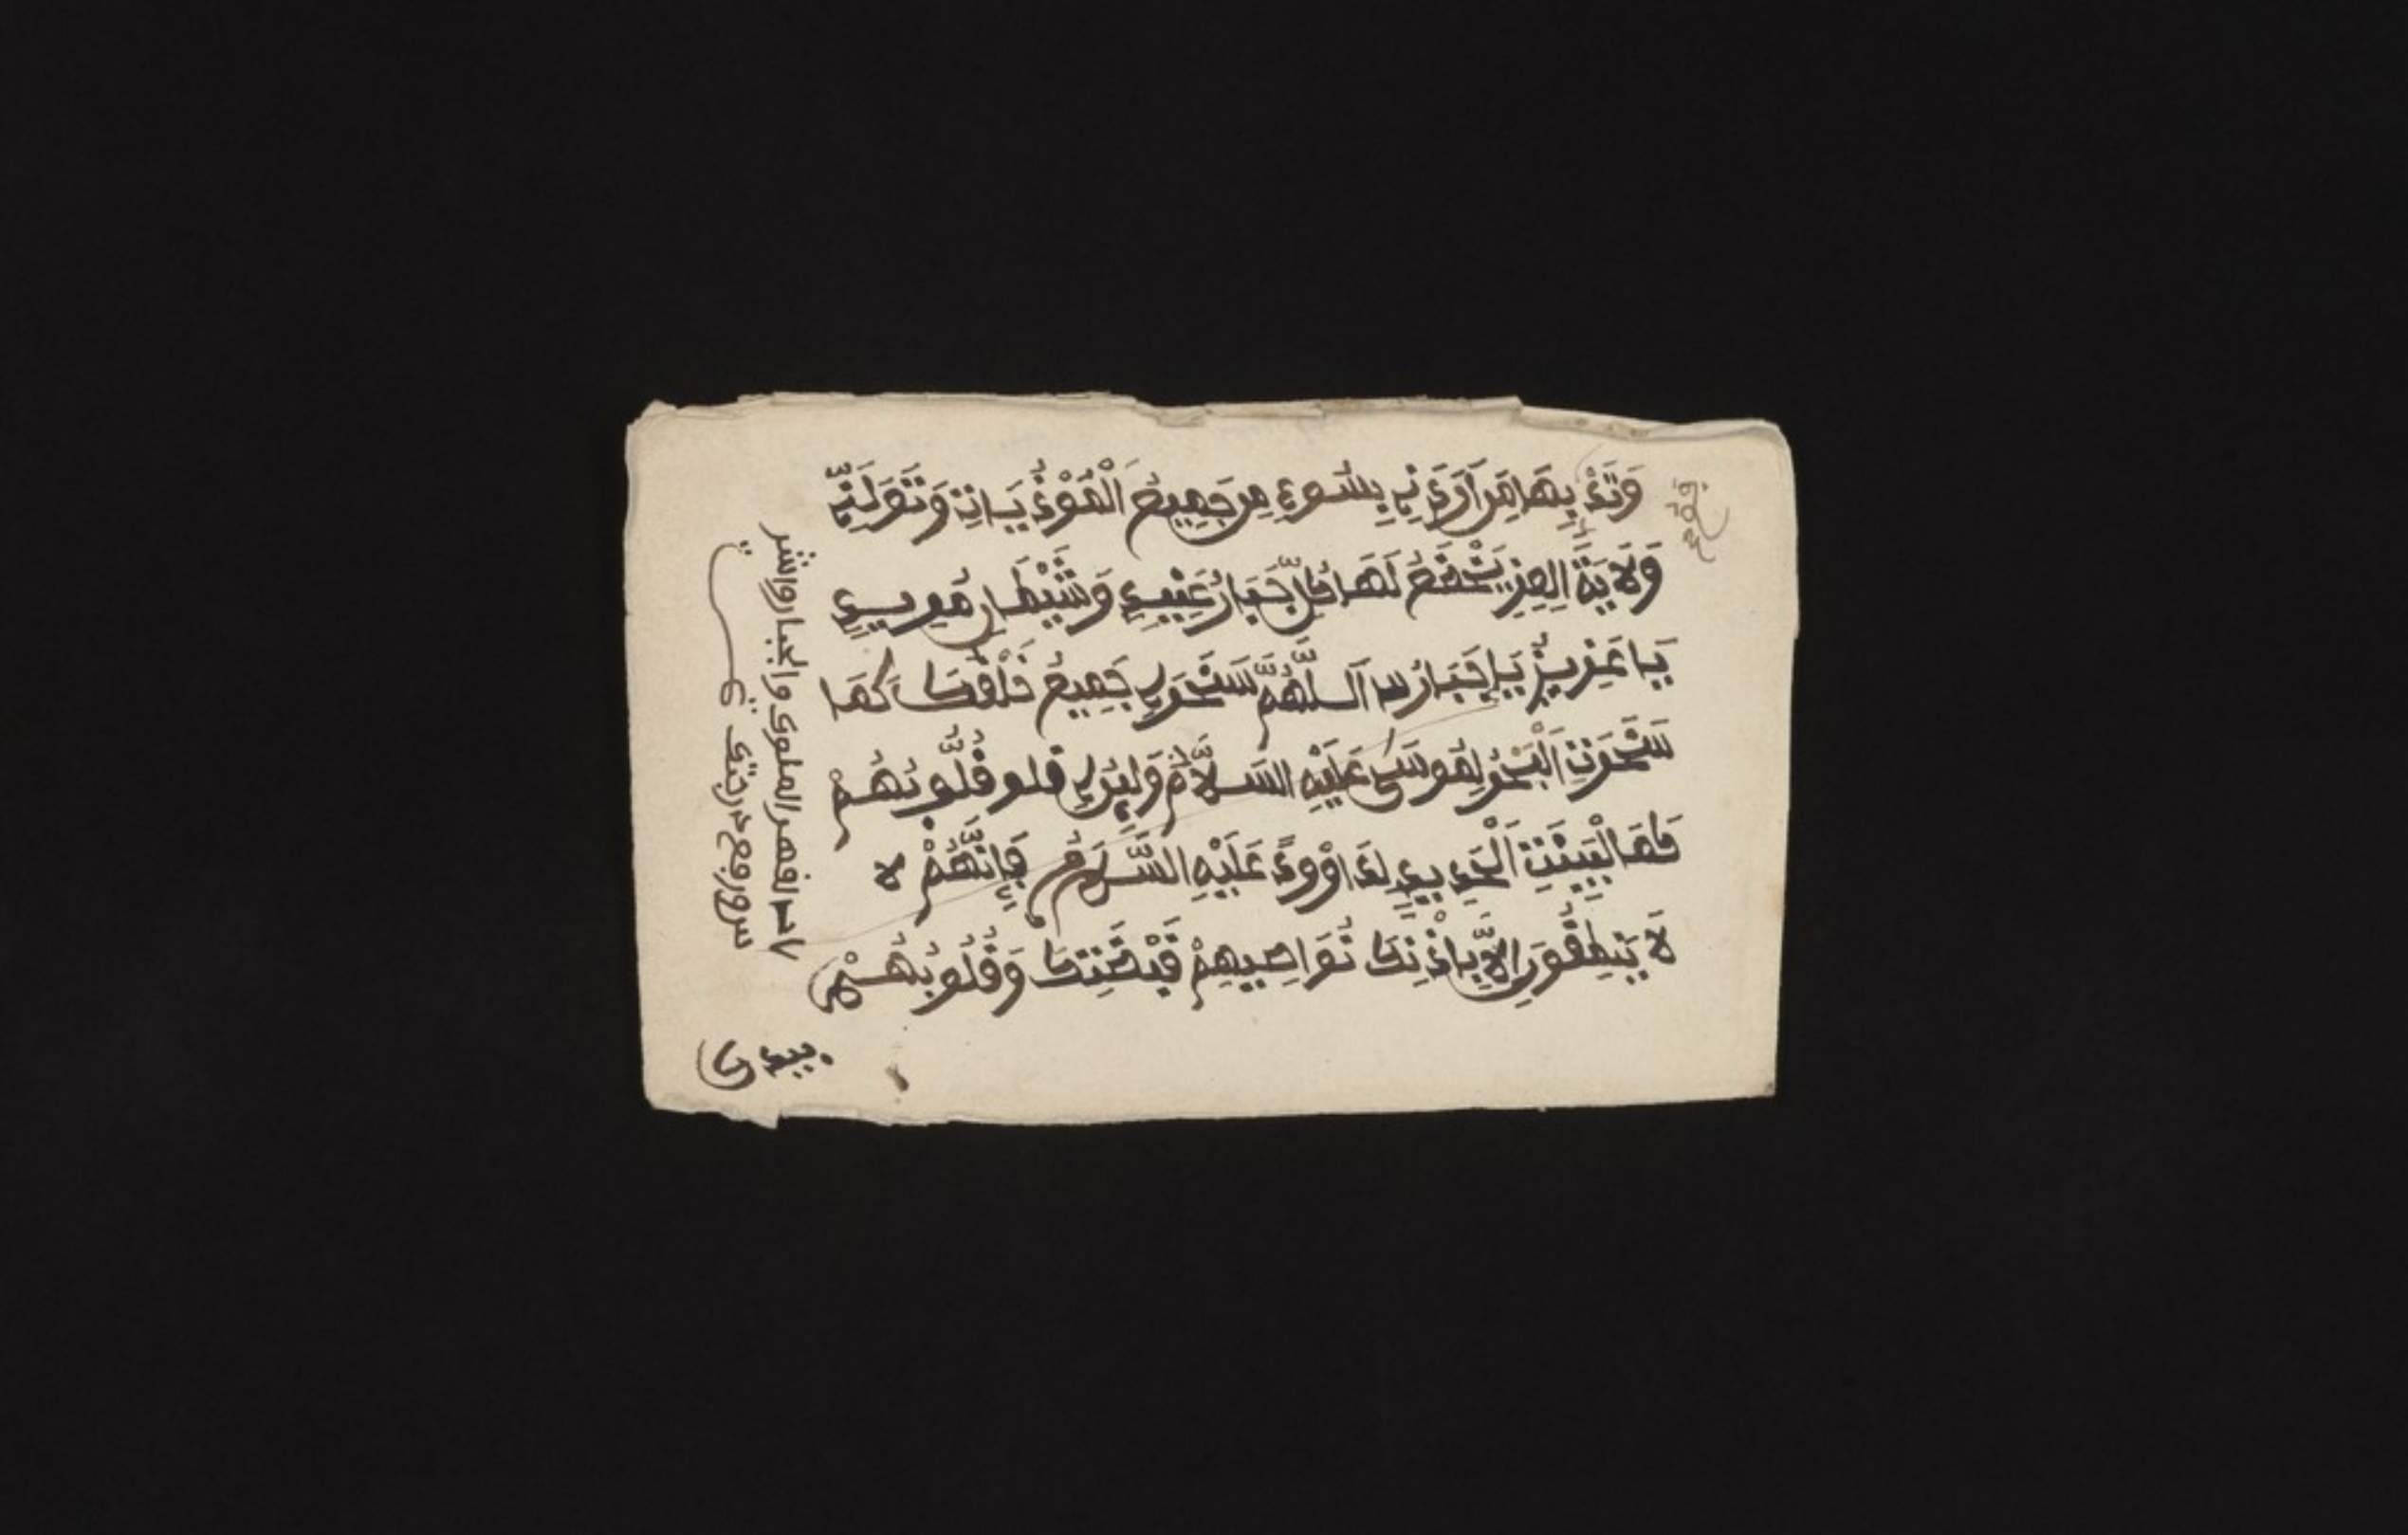 وَتَدْبِهَا مَن اَرَادَنِے بِسُوءٍ مِن جَمِيعِ الْمُوْذِيَاتِ وَتَوَلَنِّے
وَلَايَةَ الْعِزِ يَخْضَعُ لَهَا كُلُّ جَبَارُ عَنِيدٍ وَشَيْطَانٍ مَرِيدٍ
يَا عَزِيزُ يَا جَبَارُ اَللَّهُمَّ سَخِّرْ لِے جَمِيعَ خَلْقِكَ كَمَا
سَخَّرْتَ الْبَحْرَ لِمُوسَى عَلَيْهِ السَّلَامُ وَلَيِّنْ لِے قُلُوبَهُمْ
كَمَا لَيَّنْتَ الْحَدِيدَ لِدَاوُودَ عَلَيْهِ السَّلَامُ فَإِنَّهُمْ ه
لَا يَنْطِقُونَ إِلَّا بِإِذْنِكَ نَوَاصِيهِمْ قَبْضَتِكَ وَقُلُوبُهُمْ
بيدك
القهر الملوك والجبار